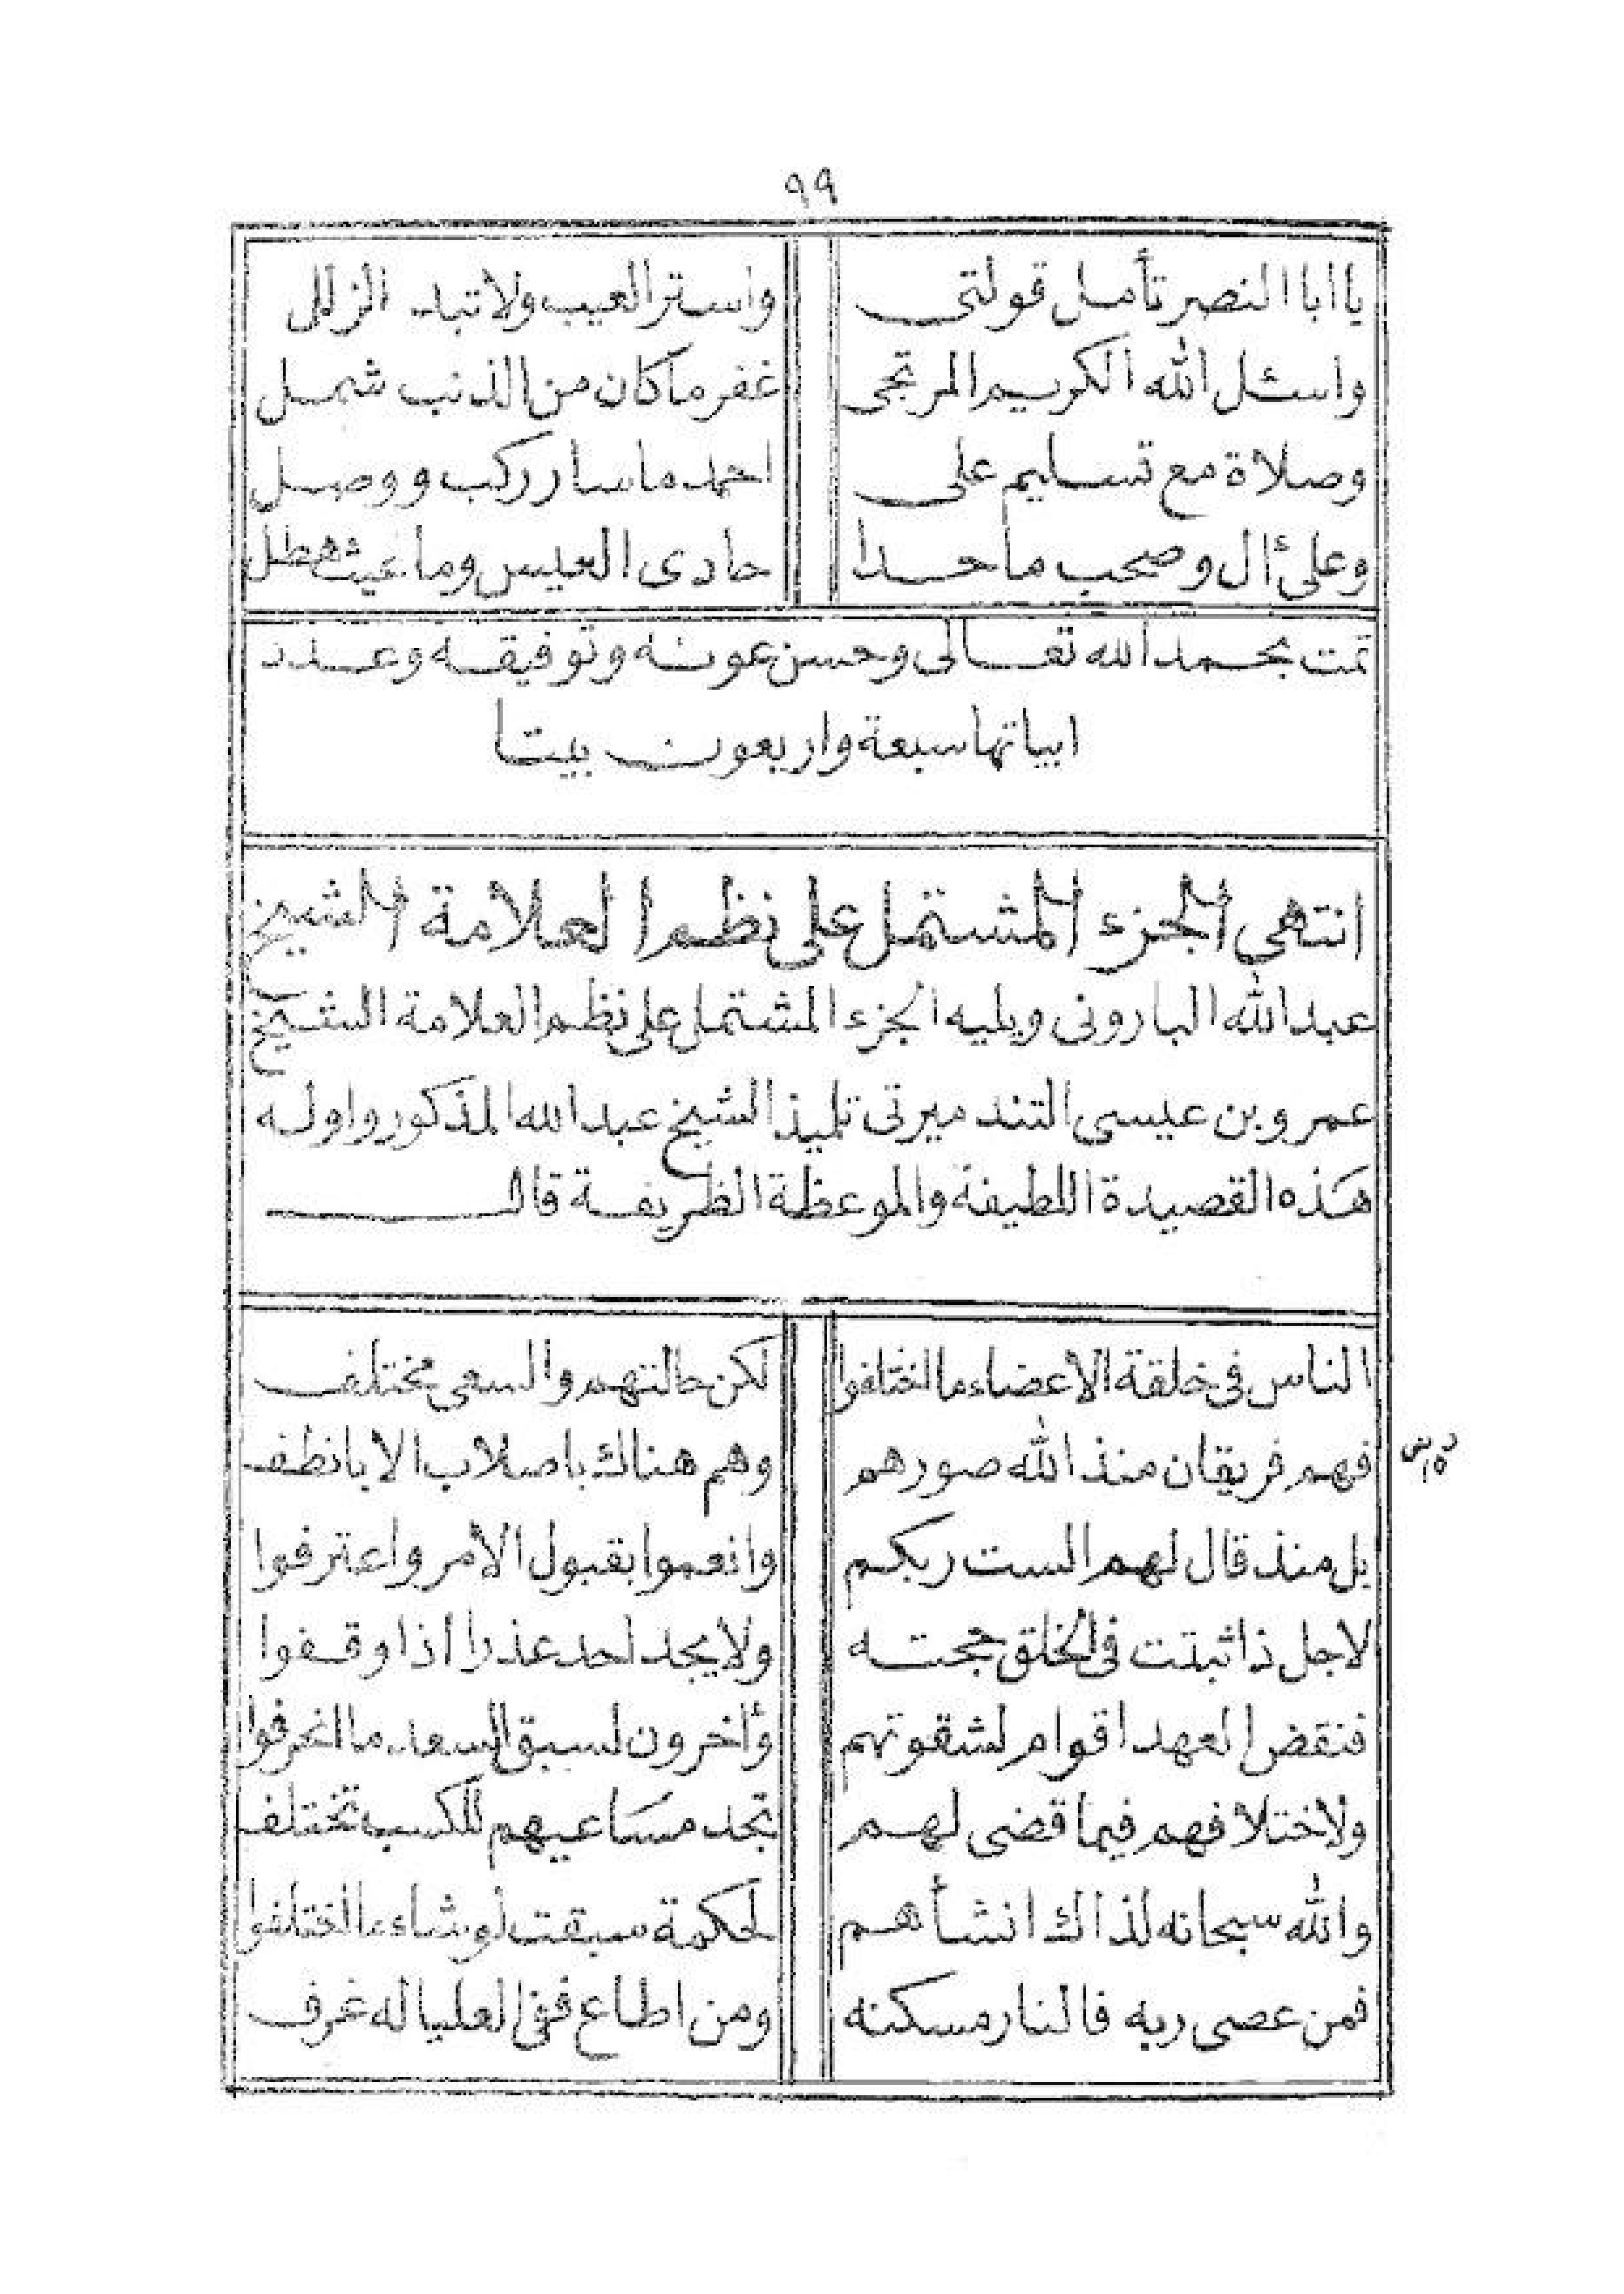 ٩٩
ياابا النصر تأمل قولتى واستر العيب ولا تبد الزلل
واسئل الله الكريم المرتجى غفر ما كان من الذنب شمل
وصلاة مع تسليم على احمد ما سار ركب ووصل
وعلى ءال وصحب ما حدا حادى العيس وما غيث هطل
تمت بحمد الله تعالى وحسن عونه وتوفيقه وعدد
ابياتها سبعة واربعون بيتا
انتهى الجزء المشتمل على نظم العلامة الشيخ
عبد الله البارونى ويليه الجزء المشتمل على نظم العلامة الشيخ
عمرو بن عيسى التندميرتى تلميذ الشيخ عبد الله المذكور واوله
هذه القصيدة اللطيفة والموعظة الظريفة قال
الناس فى خلقة الاعضاء ما اختلفوا لكن حالتهم والسعى مختلف
فهم فريقان منذ الله صورهم وهم هناك باصلاب الابا نطف
بل منذ قال لهم الست ربكم وانعموا بقبول الامر واعترفوا
لاجل ذا ثبتت فى الخلق حجته ولا يجد احد عذرا اذا وقفوا
فنقض العهد اقوام لشقوتهم وأاخرون لسبق السعد ما انحرفوا
ولاختلافهم فيما قضى لهم تجد مساعيهم للكسب تختلف
والله سبحانه لذاك انشأهم لحكمة سبقت لو شاء ما اختلفوا
فمن عصى ربه فالنار مسكنه ومن اطاع ففى العليا له غرف